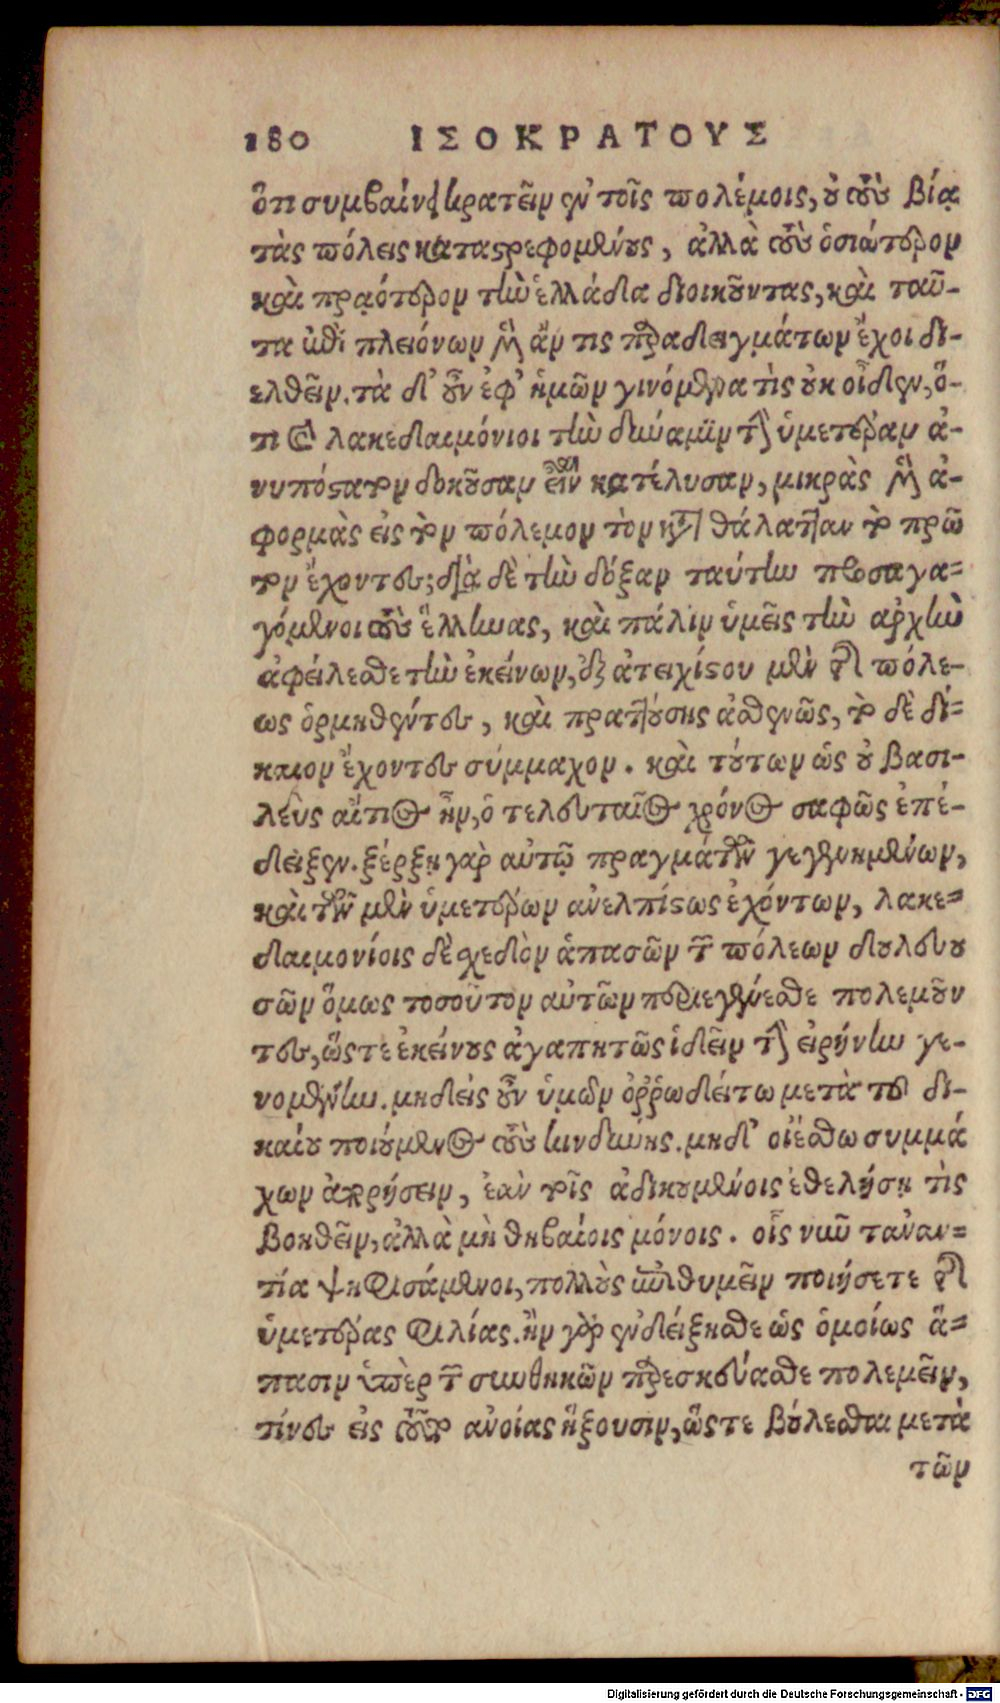 180 ΙΣΟΚΡΑΤΟΥΣ
ὅτι συμβαίνει κρατεῖν ἐν τοῖς πολέμοις, οὐ τοὺς βίᾳ
τὰς πόλεις καταστρεφομένους, ἀλλὰ τοὺς ὁσιώτερον
καὶ πραότερον τὴν ἑλλάδα διοικοῦντας, καὶ ταῦ-
τα ἐπὶ πλειόνων μὲν ἄν τις παραδειγμάτων ἔχοι δι-
ελθεῖν. τὰ δ' οὖν ἐφ' ἡμῶν γινόμενα τὶς οὐκ οἶδεν, ὅ-
τι λακεδαιμόνιοι τὴν δύναμιν τὴν ὑμετέραν ἀ-
νυπόστατον δοκοῦσαν εἶναι κατέλυσαν, μικρὰς μὲν ἀ-
φορμὰς εἰς τὸν πόλεμον τὸν κατὰ θάλατταν τὸ πρῶ
τον ἔχοντες; διὰ δὲ τὴν δόξαν ταύτην προσαγα-
γόμενοι τοὺς ἕλληνας, καὶ πάλιν ὑμεῖς τὴν ἀρχὴν
ἀφείλεσθε τὴν ἐκείνων, ἐξ ἀτειχίστου μὲν τῆς πόλε-
ως ὁρμηθέντες, καὶ πραττούσης ἀσθενῶς, τὸ δὲ δί-
καιον ἔχοντες σύμμαχον. καὶ τούτων ὡς ὁ βασι-
λεὺς αἴτιος ἦν, ὁ τελευταῖος χρόνος σαφῶς ἐπέ-
δειξεν. ξέρξῃ γὰρ αὐτῷ πραγμάτων γεγενημένων,
καὶ τῶν μὲν ὑμετέρων ἀνελπίστως ἐχόντων, λακε-
δαιμονίοις δὲ σχεδὸν ἁπασῶν τῶν πόλεων δουλευου
σῶν ὅμως τοσοῦτον αὐτῶν περιεγένεσθε πολεμοῦν
τες, ὥστε ἐκείνους ἀγαπητῶς ἰδεῖν τὴν εἰρήνην γε-
νομένην. μηδεὶς οὖν ὑμῶν ὀῤῥωδείτω μετὰ τοῦ δι-
καίου ποιούμενος τοὺς κινδύνης. μηδ' οἰέσθω συμμά
χων ἀπορήσειν, ἐὰν τοῖς ἀδικουμένοις ἐθελήσῃ τὶς
βοηθεῖν, ἀλλὰ μὴ θηβαίοις μόνοις. οἷς νῦν τἀναν-
τία ψηφισάμενοι, πολλοὺς ἐπιθυμεῖν ποιήσετε τῆς
ὑμετέρας φιλίας. ἢν γὰρ ἐνδείξησθε ὡς ὁμοίως ἅ-
πασιν ὑπὲρ τῶν συνθηκῶν παρεσκεύασθε πολεμεῖν,
τίνες εἰς τοῦτο ἀνοίας ἥξουσιν, ὥστε βούλεσθαι μετὰ
τῶν
Digitalisierung gefördert durch die Deutsche Forschungsgemeinschaft - DFG